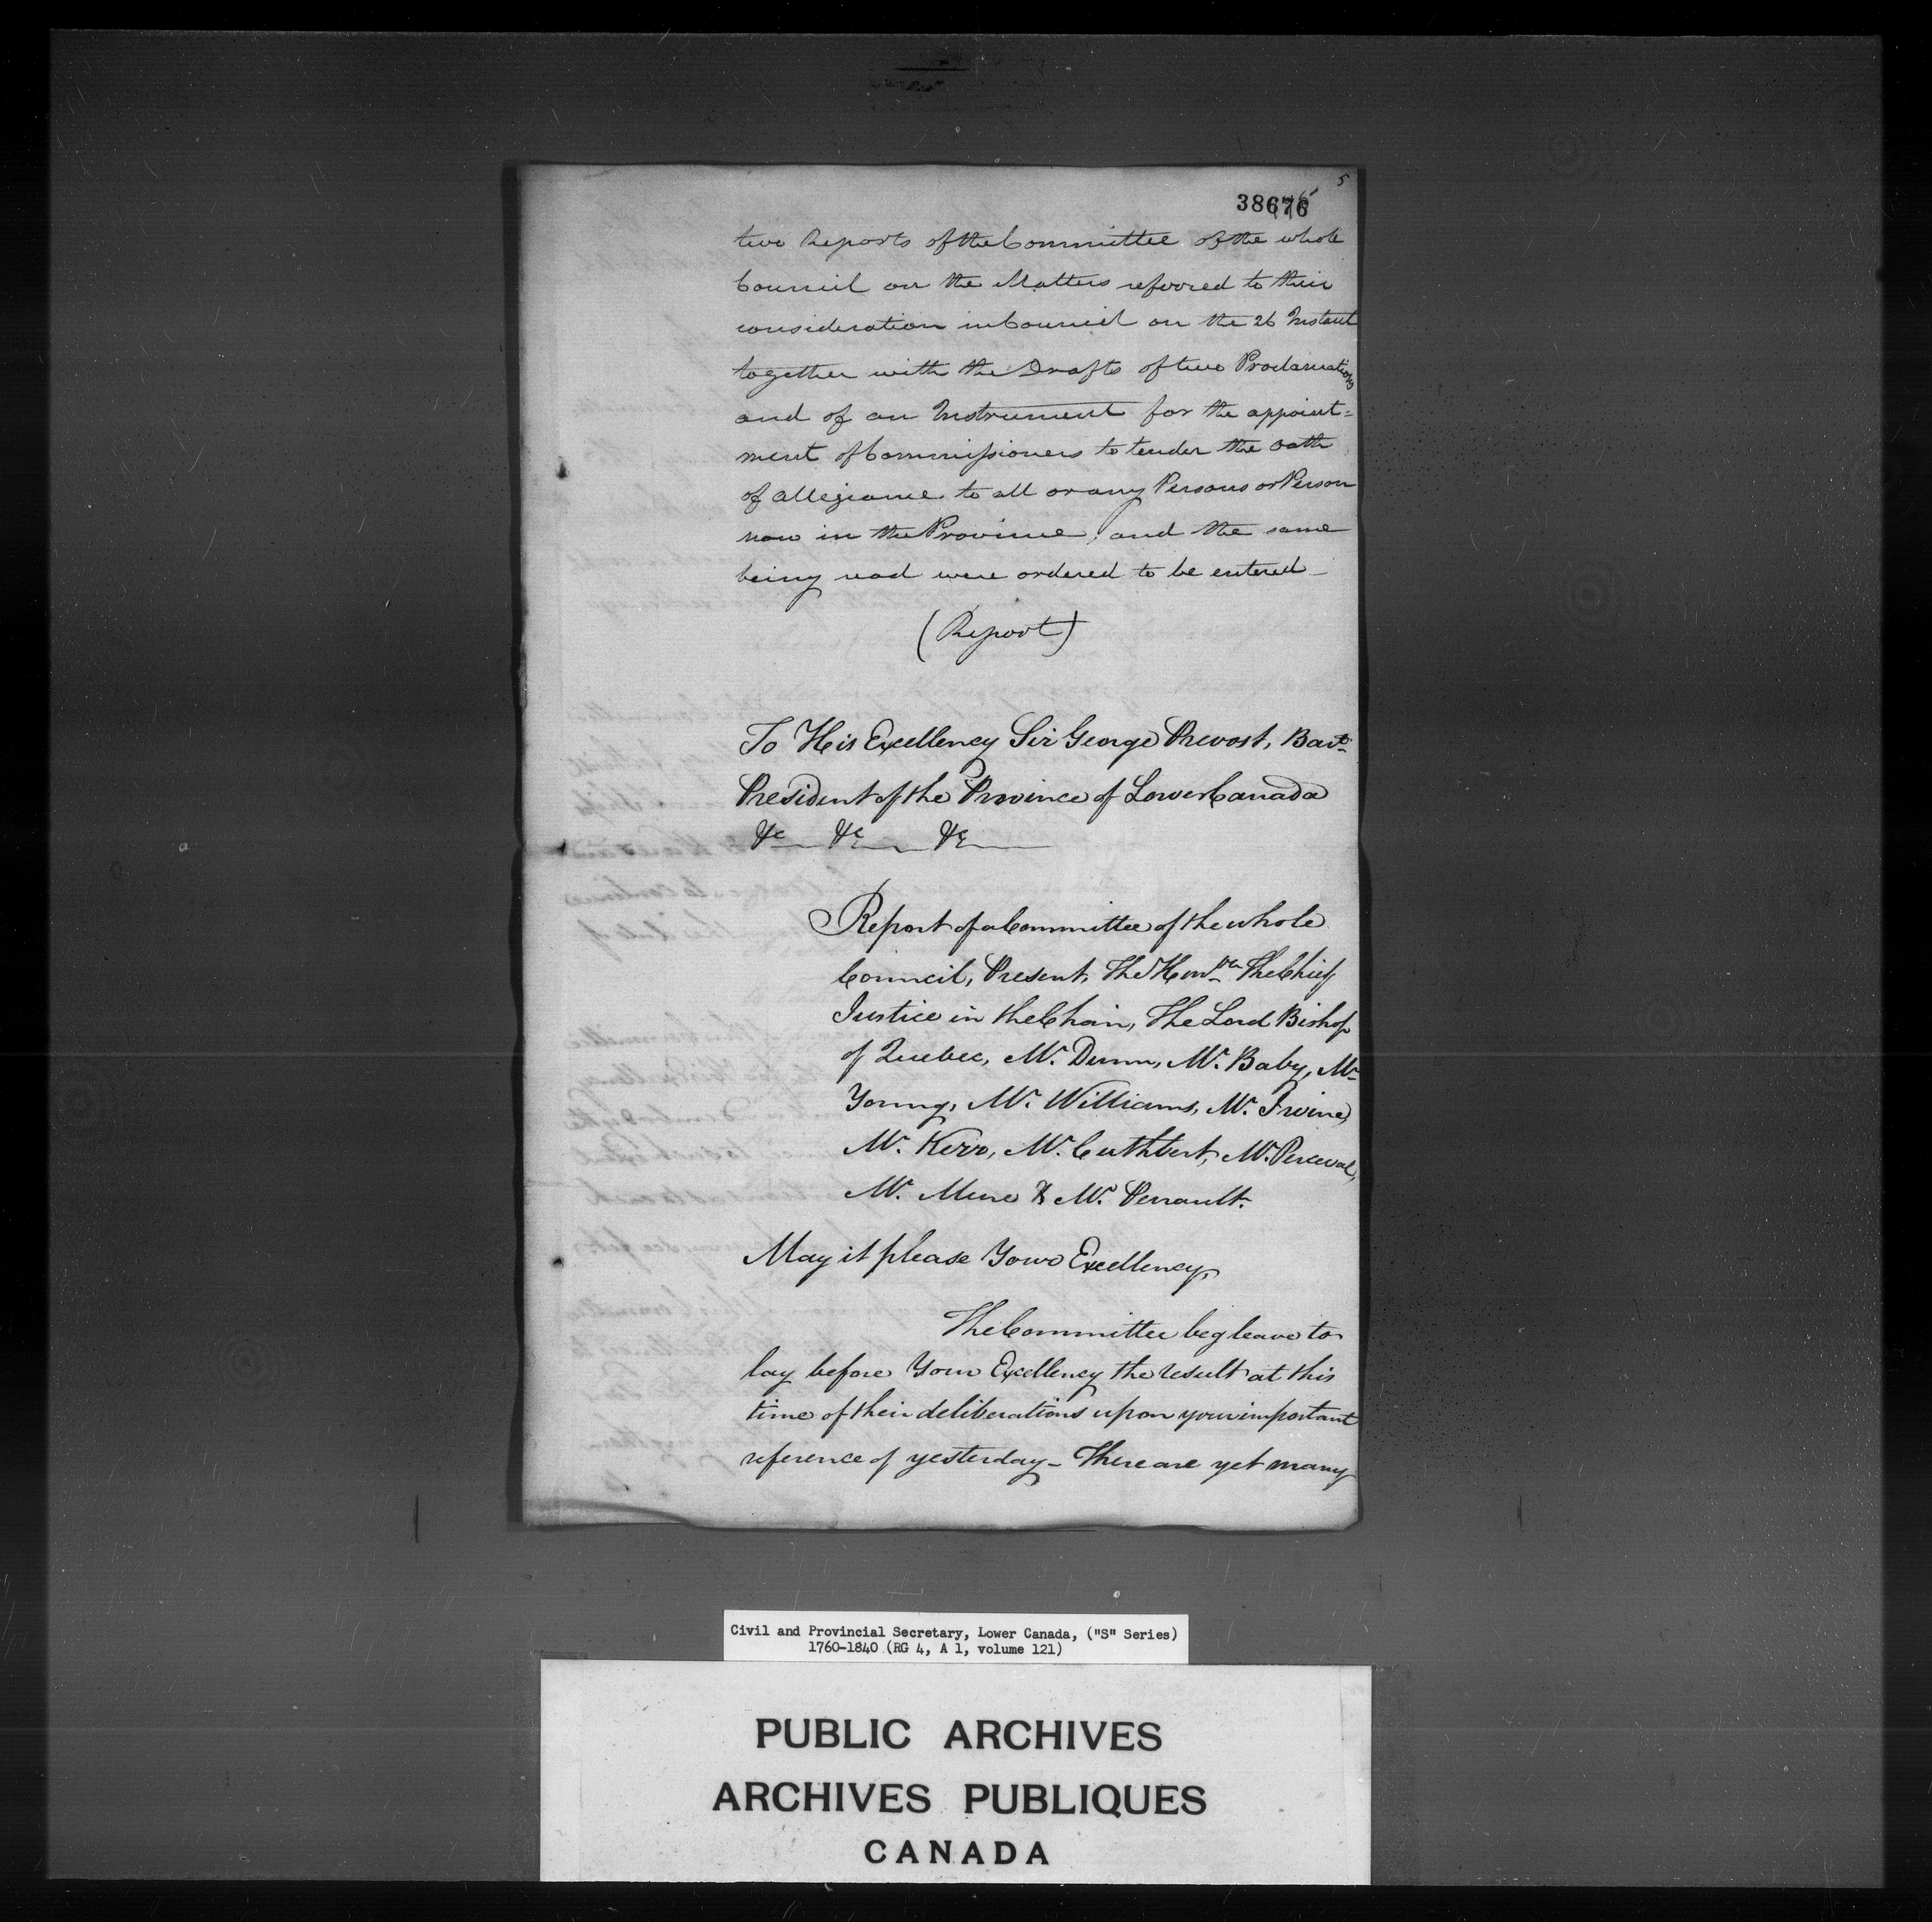 5
38676
two Reports of the Committee of the whole
Council on the Matters referred to their
consideration in Council on the 26 Instant
together with the Drafts of two Proclamations
and of an Instrument for the appoint=
ment of Commissioners to tender the oath
of allegiance to all or any Persons or Person
now in the Province, and the same
being read were ordered to be entered_
(Report)
To His Excellency Sir George Prevost, Bart.
President of the Province of Lower Canada
&c &c &c
Report of a Committee of the whole
Council, Present, The Honble The Chief
Justice in the Chair, The Lord Bishop
of Quebec, Mr. Dunn, Mr. Baby, Mr.
Young, Mr. Williams, Mr. Irvine,
Mr. Kerr, Mr. Cuthbert, Mr. Perceval,
Mr. Mure & Mr. Perrault.
May it please Your Excellency,
The Committee beg leave to
lay before Your Excellency the result at this
time of their deliberations upon your important
reference of yesterday_ There are yet many
Civil and Provincial Secretary, Lower Canada, ("S" Series)
1760-1840 (RG 4, A 1, volume 121)
PUBLIC ARCHIVES
ARCHIVES PUBLIQUES
CANADA